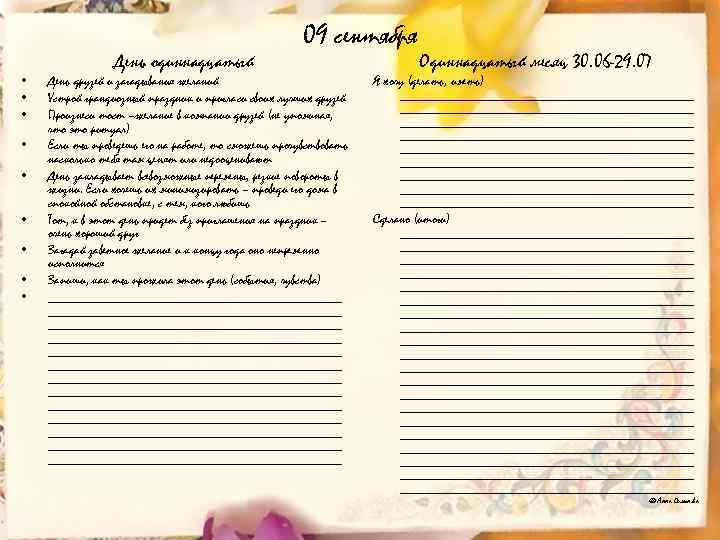 09 сентября
День одиннадцатый
• День друзей и загадывания желаний
• Устрой грандиозный праздник и пригласи своих лучших друзей
• Произнеси тост – желание в компании друзей (не упоминая,
что это ритуал)
• Если ты проведешь его на работе, то сможешь прочувствовать
насколько тебя там ценят или недооценивают
• День закладывает всевозможные перемены, резкие повороты в
жизни. Если хочешь их минимизировать – проведи его дома в
спокойной обстановке, с тем, кого любишь
• Тот, к в этот день придет без приглашения на праздник –
очень хороший друг
• Загадай заветное желание и к концу года оно непременно
исполнится
• Запиши, как ты прожила этот день (события, чувства)
Одиннадцатый месяц 30.06-29.07
Я хочу (делать, иметь)
Сделано (итоги)
© Анна